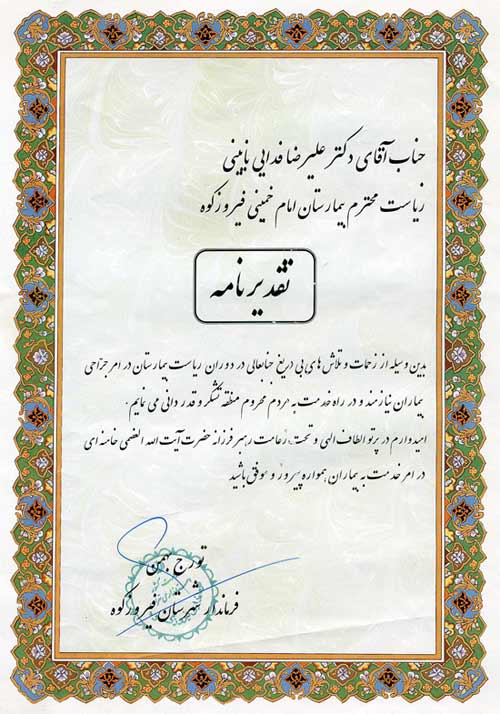 جناب آقای دکتر علیرضا فدایی نایینی
ریاست محترم بیمارستان امام خمینی فیروزکوه
تقدیرنامه
بدین وسیله از زحمات و تلاش های بی دریغ جنابعالی در دوران ریاست بیمارستان در امر جراحی
بیماران نیازمند و در راه خدمت به مردم محروم منطقه تشکر و قدردانی می نمایم.
امیدوارم در پرتو الطاف الهی و تحت زعامت رهبر فرزانه حضرت آیت الله العضمی خامنه ای
در امر خدمت به بیماران همواره پیروز و موفق باشید
تورج بهمن
فرماندار شهرستان فیروزکوه